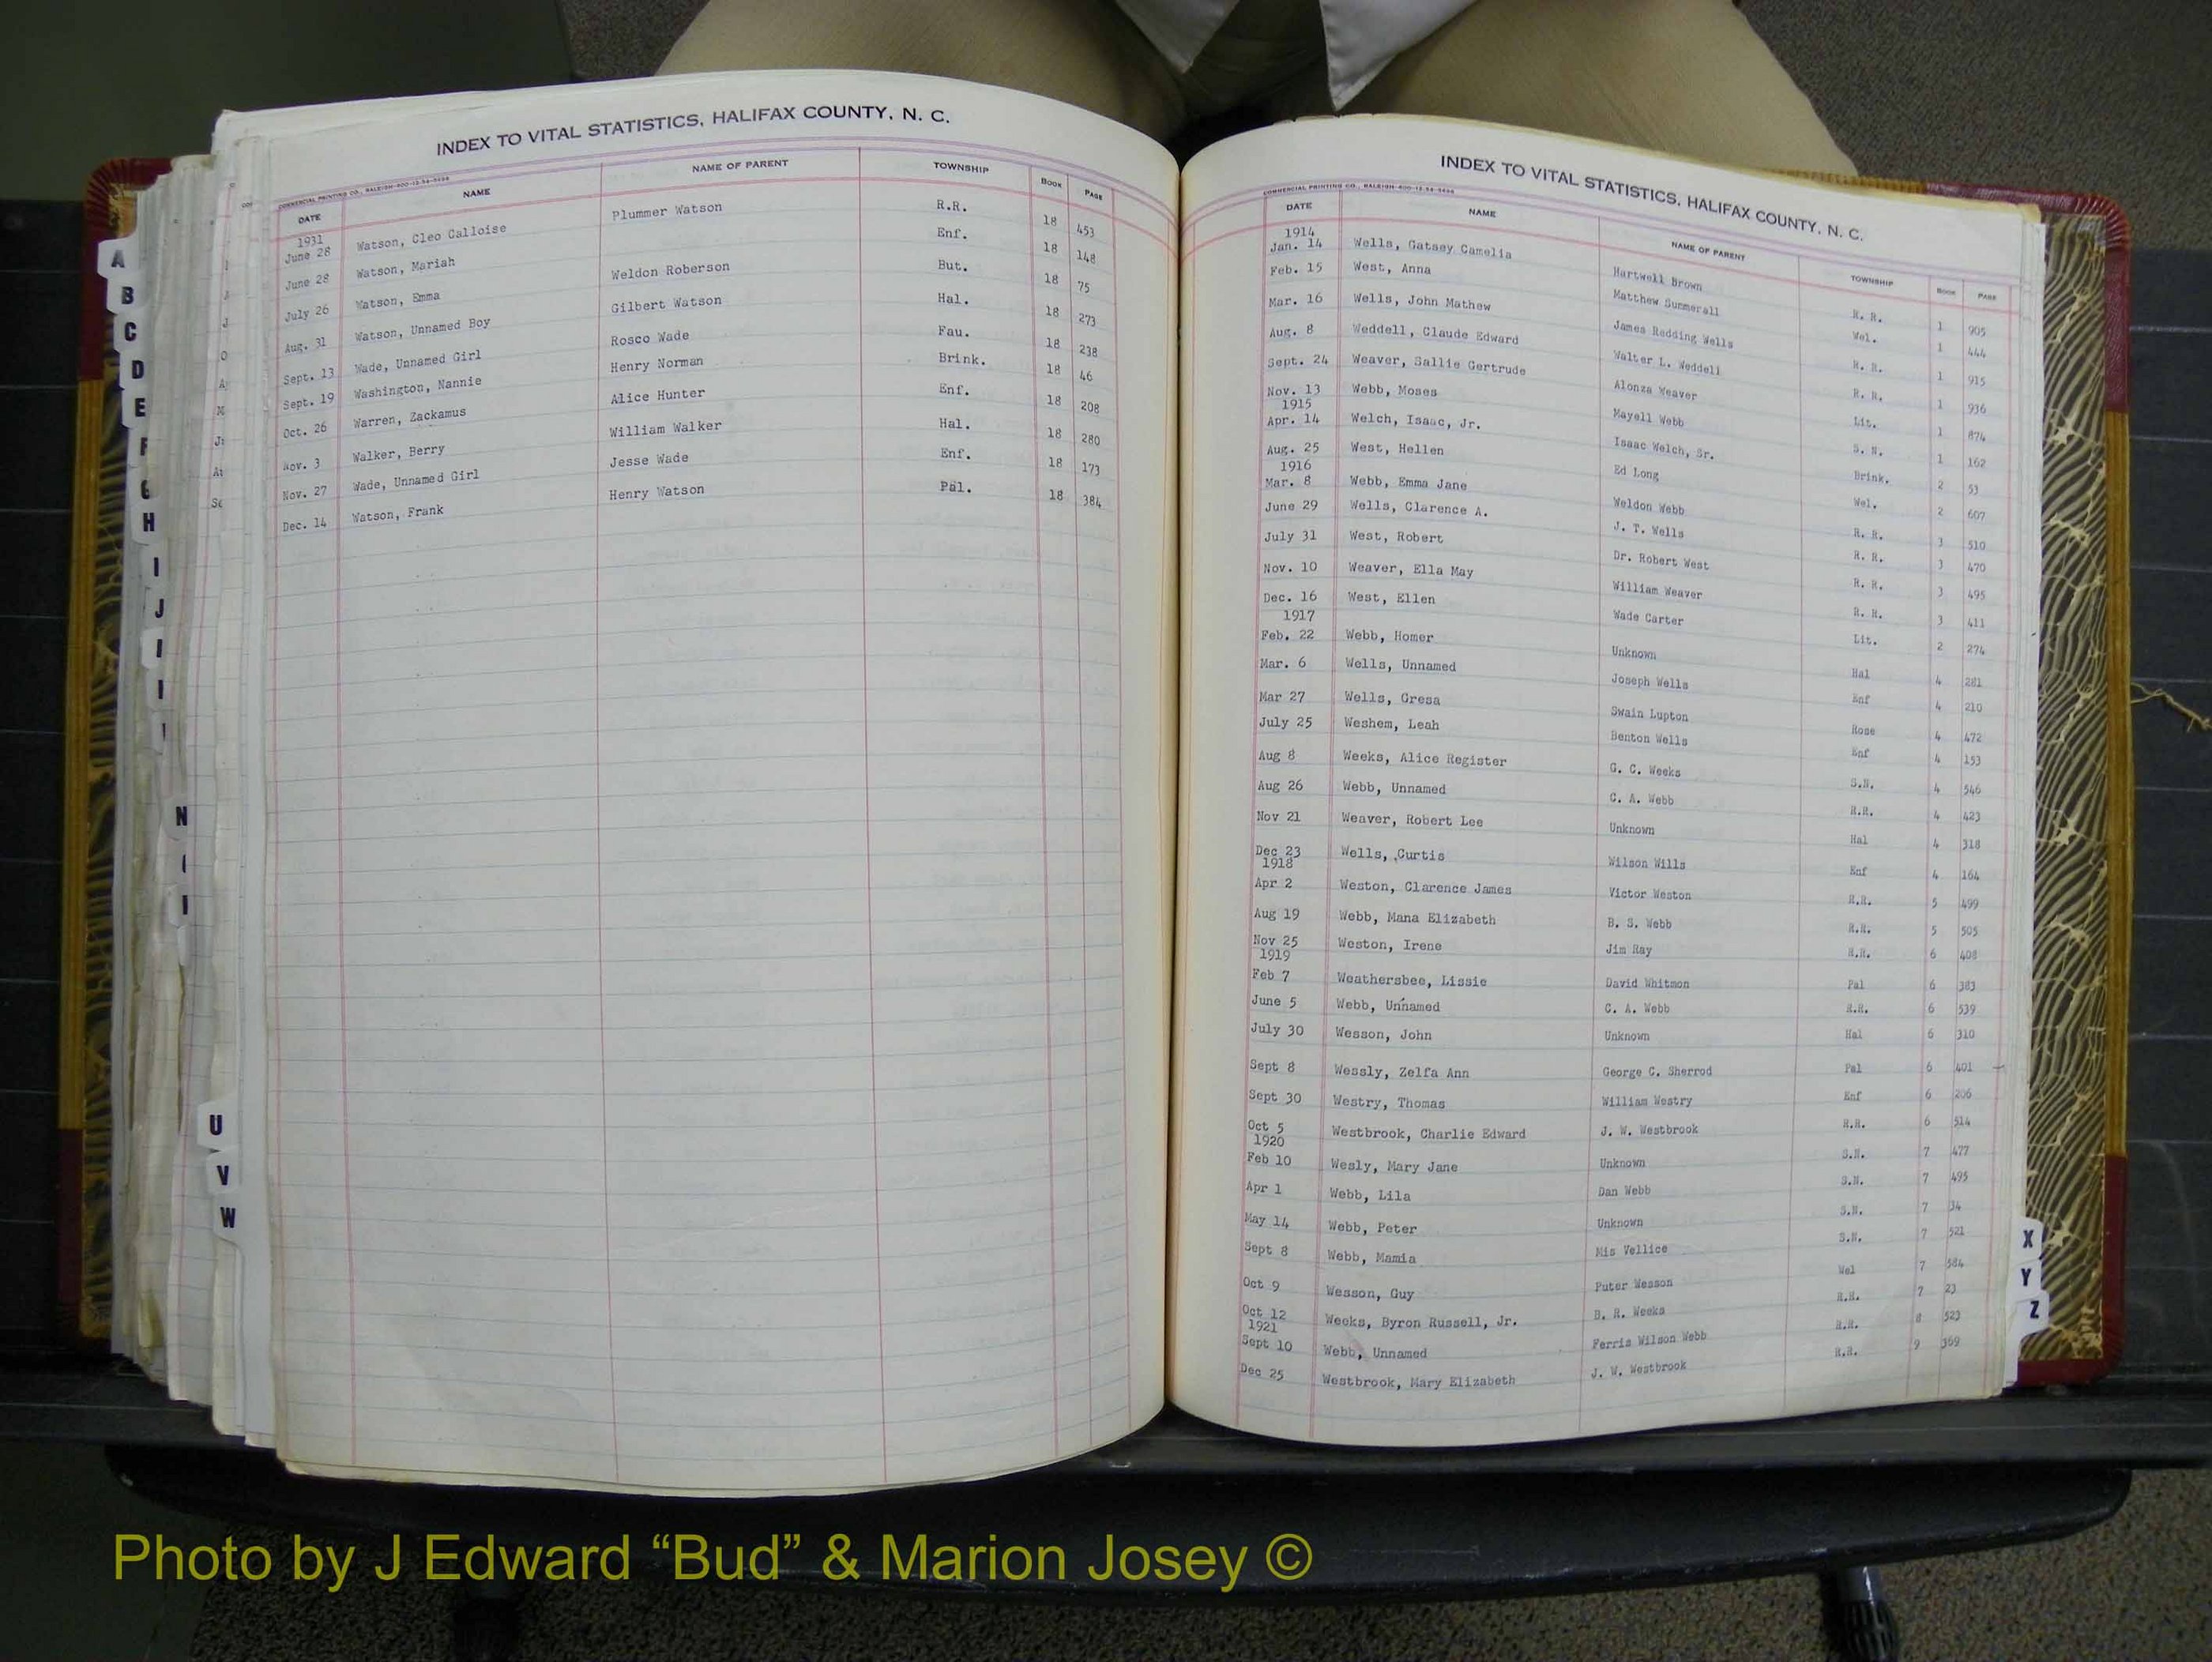 INDEX TO VITAL STATISTICS, HALIFAX COUNTY, N. C.
COMMERCIAL PRINTING CO., RALEIGH
DATE NAME NAME OF PARENT TOWNSHIP BOOK PAGE
1931
June 28 Watson, Cleo Calloise Plummer Watson R.R. 18 453
June 28 Watson, Mariah Enf. 18 148
July 26 Watson, Emma Weldon Roberson But. 18 75
Aug. 31 Watson, Unnamed Boy Gilbert Watson Hal. 18 273
Sept. 13 Wade, Unnamed Girl Rosco Wade Fau. 18 238
Sept. 19 Washington, Nannie Henry Norman Brink. 18 46
Oct. 26 Warren, Zackamus Alice Hunter Enf. 18 208
Nov. 3 Walker, Berry William Walker Hal. 18 280
Nov. 27 Wade, Unnamed Girl Jesse Wade Enf. 18 173
Dec. 14 Watson, Frank Henry Watson Pal. 18 384
A
B
C
D
E
F
G
H
I
J
N
U
V
W
INDEX TO VITAL STATISTICS, HALIFAX COUNTY, N. C.
COMMERCIAL PRINTING CO., RALEIGH
DATE NAME NAME OF PARENT TOWNSHIP BOOK PAGE
1914
Jan. 14 Wells, Gatsey Camelia Hartwell Brown R. R. 1 905
Feb. 15 West, Anna Matthew Summerall Wel. 1 444
Mar. 16 Wells, John Mathew James Redding Wells R. R. 1 915
Aug. 8 Weddell, Claude Edward Walter L. Weddell R. R. 1 936
Sept. 24 Weaver, Sallie Gertrude Alonza Weaver Lit. 1 874
Nov. 13 Webb, Moses Mayell Webb S. N. 1 162
1915
Apr. 14 Welch, Isaac, Jr. Isaac Welch, Sr. Brink. 2 53
Aug. 25 West, Hellen Ed Long Wel. 2 607
1916
Mar. 8 Webb, Emma Jane Weldon Webb R. R. 3 510
June 29 Wells, Clarence A. J. T. Wells R. R. 3 470
July 31 West, Robert Dr. Robert West R. R. 3 495
Nov. 10 Weaver, Ella May William Weaver R. R. 3 411
Dec. 16 West, Ellen Wade Carter Lit. 2 274
1917
Feb. 22 Webb, Homer Unknown Hal 4 281
Mar. 6 Wells, Unnamed Joseph Wells Enf 4 210
Mar 27 Wells, Gresa Swain Lupton Rose 4 472
July 25 Weshem, Leah Benton Wells Enf 4 153
Aug 8 Weeks, Alice Register G. C. Weeks S.N. 4 546
Aug 26 Webb, Unnamed C. A. Webb R.R. 4 423
Nov 21 Weaver, Robert Lee Unknown Hal 4 318
Dec 23 Wells, Curtis Wilson Wills Enf 4 164
1918
Apr 2 Weston, Clarence James Victor Weston R.R. 5 499
Aug 19 Webb, Mana Elizabeth B. S. Webb R.R. 5 505
Nov 25 Weston, Irene Jim Ray R.R. 6 408
1919
Feb 7 Weathersbee, Lissie David Whitmon Pal 6 383
June 5 Webb, Unnamed C. A. Webb R.R. 6 539
July 30 Wesson, John Unknown Hal 6 310
Sept 8 Wessly, Zelfa Ann George C. Sherrod Pal 6 401
Sept 30 Westry, Thomas William Westry Enf 6 206
Oct 5 Westbrook, Charlie Edward J. W. Westbrook R.R. 6 514
1920
Feb 10 Wesly, Mary Jane Unknown S.N. 7 477
Apr 1 Webb, Lila Dan Webb S.N. 7 495
May 14 Webb, Peter Unknown S.N. 7 34
Sept 8 Webb, Mamia Mis Vellice S.N. 7 521
Oct 9 Wesson, Guy Puter Wesson Wel 7 584
Oct 12 Weeks, Byron Russell, Jr. B. R. Weeks R.R. 7 23
1921
Sept 10 Webb, Unnamed Ferris Wilson Webb R.R. 8 523
Dec 25 Westbrook, Mary Elizabeth J. W. Westbrook R.R. 9 369
X
Y
Z
Photo by J Edward “Bud” & Marion Josey ©